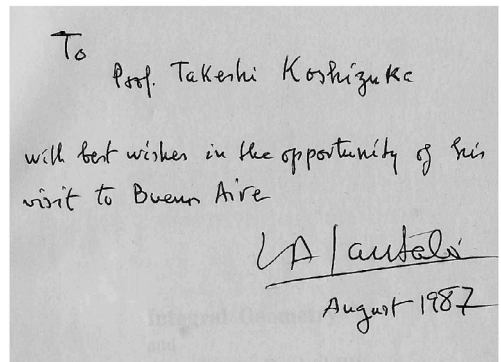 To
Prof. Takeshi Koshizuka
with best wishes in the opportunity of his
visit to Buenos Aires
LA Santaló
August 1987
Integral Geometry
and